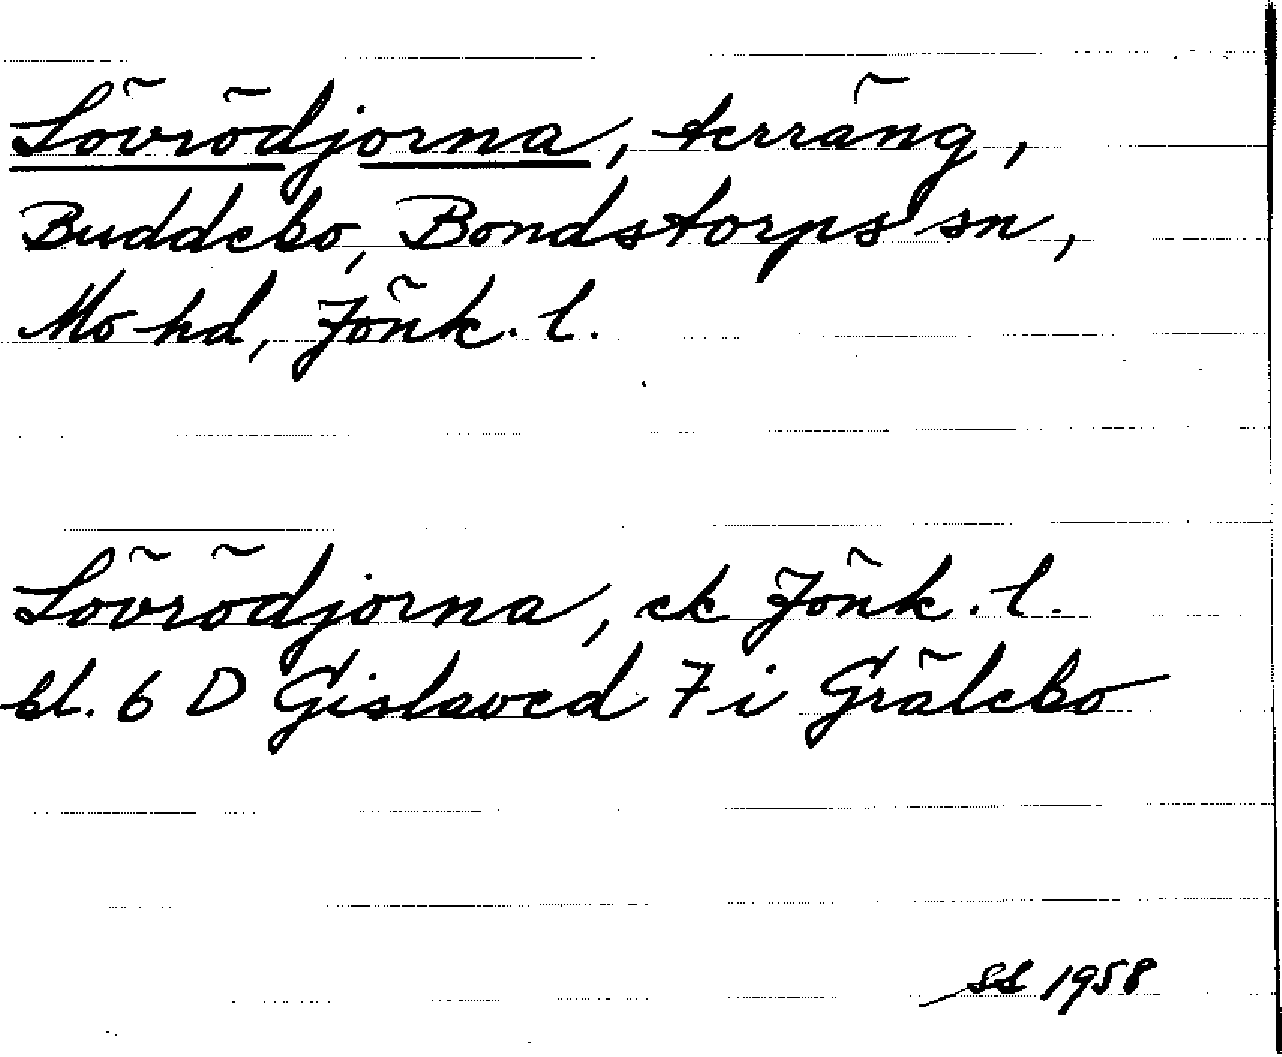 Lövrödjorna, terräng,
Buddebo, Bondstorps sn,
Mo hd, Jönk. l.
Lövrödjorna, ek Jönk. l.
bl. 6 D Gislaved 7 i Grälebo
SS 1958